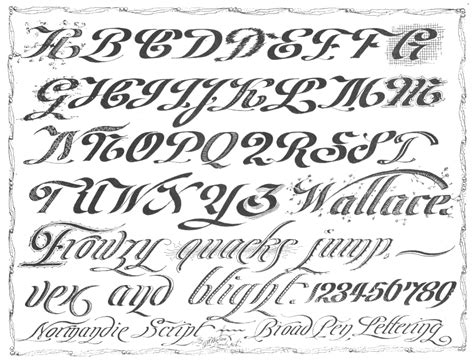 A B C D D E E F G
G H I I J K L M M
N N O P Q 2 R S S T
T U W X Y Z Wallace.
Frowzy quacks jump
vex and blight. 1234567890
Normandie Script in Broad Pen Lettering